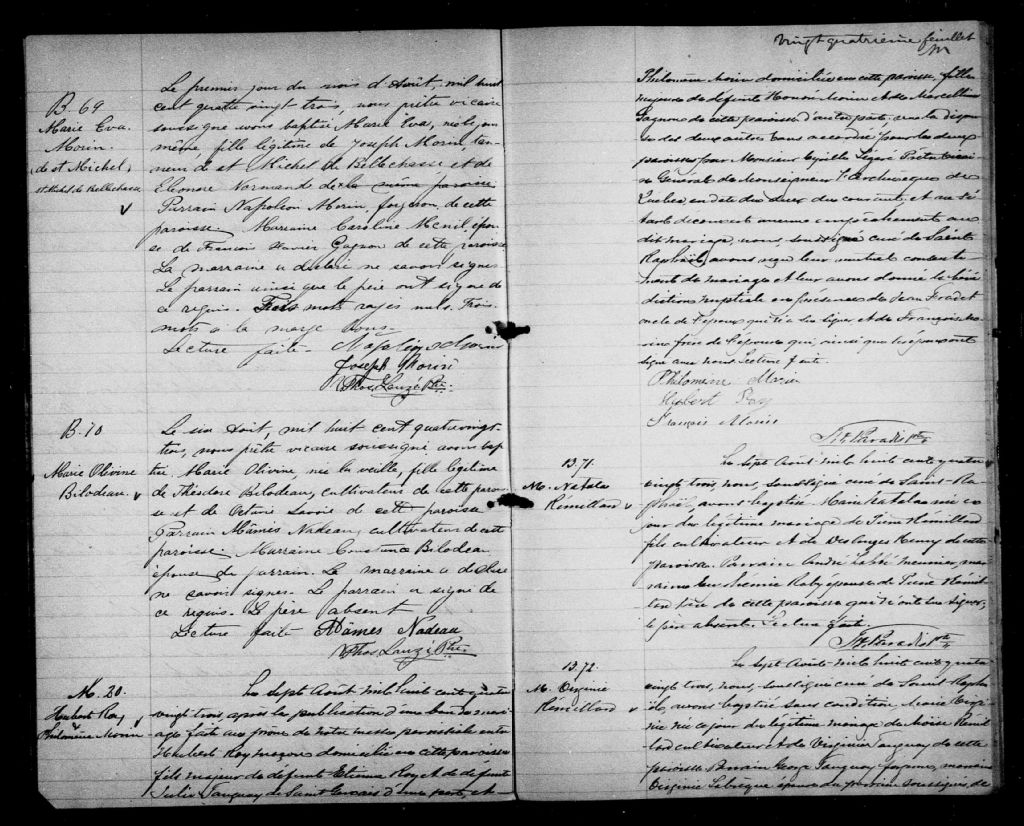 B. 69
Marie Eva
Morin
(de st Michel)
st Michel de Bellechasse
Le premier jour du mois d'Août, mil huit
cent quatre vingt trois, nous prêtre vicaire
soussigné avons baptisé Marie Eva, née le jour
même, fille légitime de Joseph Morin tan-
neur de st Michel de Bellechasse et de
Eléonore Normand de la même paroisse
Parrain Napoléon Morin, forgeron de cette
paroisse. Marraine Caroline Ménil, épou-
se de François Xavier Gagnon de cette paroisse
La marraine a déclaré ne savoir signer
Le parrain ainsi que le père ont signé de
ce requis. Trois mots rayés nuls. Trois
mots à la marge bons.
Lecture faite. Napoléon Morin
Joseph Morin
Thos. Lauzé Ptre.
B. 70
Marie Olivine
Bilodeau.
Le six Août, mil huit cent quatre vingt
trois, nous prêtre vicaire soussigné, avons bap-
tisé Marie Olivine, née la veille, fille légitime
de Théodore Bilodeau, cultivateur de cette paroi-
sse et de Octavie Savoie de cette paroisse
Parrain Mâmès Nadeau, cultivateur de cette
paroisse. Marraine Constance Bilodeau
épouse du parrain. La marraine a déclaré
ne savoir signer. Le parrain a signé de
ce requis. Le père absent
Lecture faite Mâmes Nadeau
Thos Lauzé Ptre.
M. 20.
Hubert Roy
&
Philomène Morin
Le sept Août mil huit cent quatre
vingt trois, après la publication d'un ban de mari-
age faite au prône de notre messe paroissiale entre
Hubert Roy maçon domicilié en cette paroisse
fils majeur de défunt Etienne Roy et de défunte
Julie Tanguay de Saint Gervais d'une part, et
Vingt quatrième feuillet
Philomène Morin domiciliée en cette paroisse, fille
majeure de défunt Honoré Morin et de Marcelline
Gagnon de cette paroisse d'autre part; vu la dispen-
se des deux autres bans accordée pour les deux
paroisses par Monsieur Cyrille Légaré Prêtre Vicai-
re Général de Monseigneur l'Archevêque de
Québec, en date du deux du courant, et ne s'é-
tant découvert aucun empêchement au
dit mariage, nous, soussigné curé de Saint
Raphaël, avons reçu leur mutuel consente-
ment de mariage et leur avons donné la béné-
diction nuptiale en présence de Jean Fradet
oncle de l'époux qui n'a su signer et de François Mo-
rin frère de l'épouse qui, ainsi que les époux ont
signé avec nous. Lecture faite.
Philomene Morin
Hubert Roy
François Morin
Paradis Ptre
B. 71.
M. Natalie
Rémillard
Le sept Août mil huit cent quatre
vingt trois, nous, soussigné curé de Saint-Ra-
phaël, avons baptisé Marie Natalie née ce
jour du légitime mariage de Pierre Rémillard
fils cultivateur et de Desanges Remy de cette
paroisse. Parrain André Labbé meunier, mar-
raine Marie Roby épouse de Pierre Rémil-
lard père de cette paroisse qui n'ont su signer;
le père absent. Lecture faite.
Paradis Ptre
B. 72.
M. Virginie
Rémillard
Le sept Août mil huit cent quatre
vingt trois, nous, soussigné curé de Saint Rapha-
ël, avons baptisé sans condition Marie Virgi-
nie née ce jour du légitime mariage de Moïse Rémil-
lard cultivateur et de Virginie Tanguay de cette
paroisse. Parrain George Tanguay marraine
Virginie Labrèque épouse du parrain soussignés, de